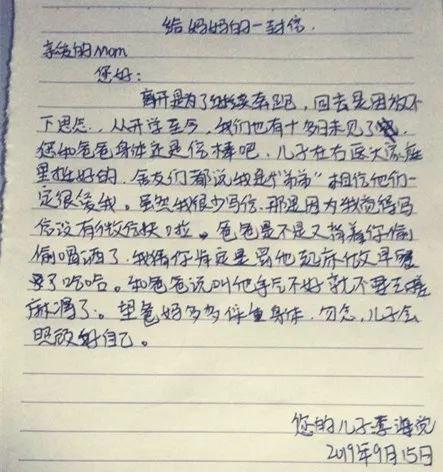 给妈妈的一封信.
亲爱的Mom
您好:
离开是为了继续奔跑，回去是因放不
下思念.，从开学至今，我们也有十多日未见了
您和爸爸身体还是倍棒吧，儿子在右医大家庭
里挺好的，舍友们都说我是个"弟弟"相信他们一
定很爱我。虽然我很少写信，那是因为我觉得写
信没有微信快啦。爸爸是不是又背着你偷
偷喝酒了．我猜你肯定是罚他起床做早餐
了哈哈。和爸爸说叫他手气不好就不要去搓
麻将了。望爸妈多多保重身体，勿念，儿子会
照顾好自己。
您的儿子李海
2019年9月15日